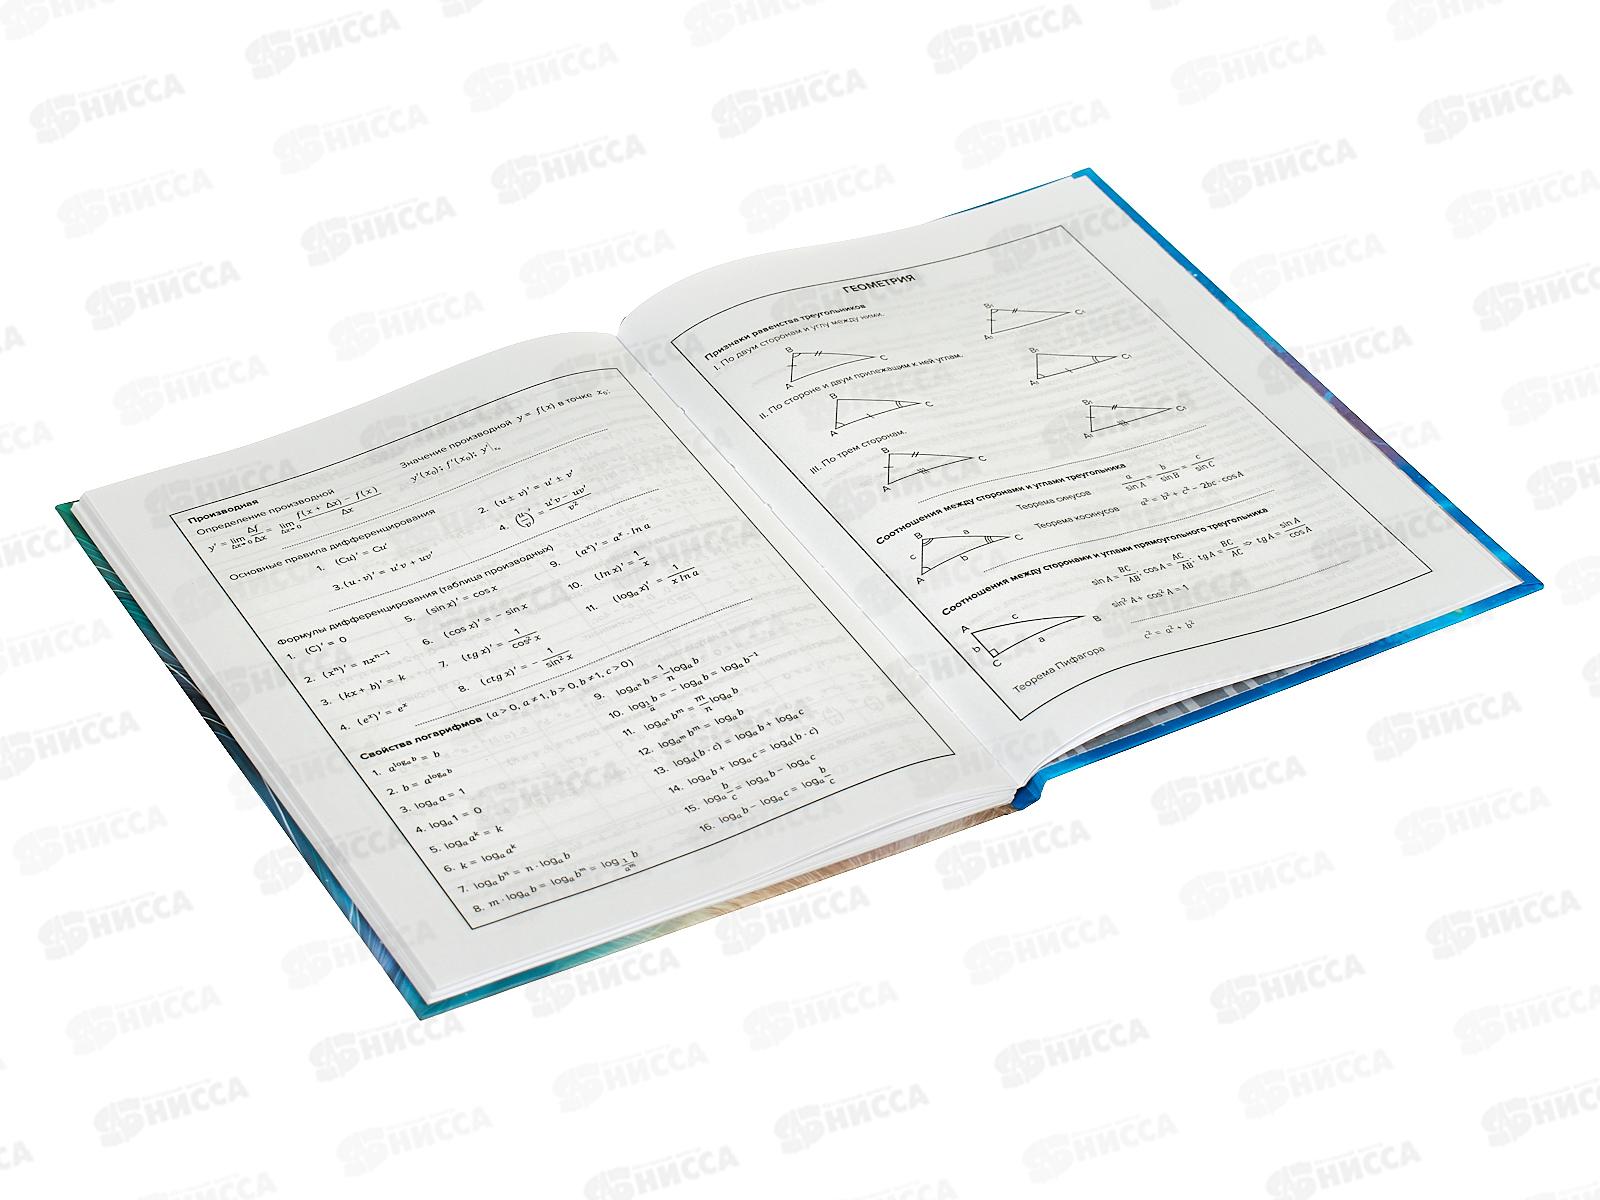 Производная
Определение производной
y' = lim Δx→0 Δf/Δx = lim Δx→0 (f(x + Δx) − f(x))/Δx
Значение производной y = f(x) в точке x₀:
y'(x₀); f'(x₀); y'|x₀
Основные правила дифференцирования
1. (Cu)' = Cu'
2. (u ± v)' = u' ± v'
3. (u · v)' = u'v + uv'
4. (u/v)' = (u'v − uv')/v²
Формулы дифференцирования (таблица производных)
1. (C)' = 0
2. (xⁿ)' = nxⁿ⁻¹
3. (kx + b)' = k
4. (eˣ)' = eˣ
5. (sin x)' = cos x
6. (cos x)' = − sin x
7. (tg x)' = 1/cos² x
8. (ctg x)' = − 1/sin² x
9. (aˣ)' = aˣ · ln a
10. (ln x)' = 1/x
11. (logₐ x)' = 1/(x ln a)
Свойства логарифмов (a > 0, a ≠ 1, b > 0, b ≠ 1, c > 0)
1. a^(logₐ b) = b
2. b = a^(logₐ b)
3. logₐ a = 1
4. logₐ 1 = 0
5. logₐ aᵏ = k
6. k = logₐ aᵏ
7. logₐ bⁿ = n · logₐ b
8. m · logₐ b = logₐ bᵐ = log_(1/aᵐ) b
9. log_(aⁿ) b = 1/n logₐ b
10. log_(1/a) b = − logₐ b = logₐ b⁻¹
11. log_(aⁿ) bᵐ = m/n logₐ b
12. log_(aᵐ) bᵐ = logₐ b
13. logₐ(b · c) = logₐ b + logₐ c
14. logₐ b + logₐ c = logₐ(b · c)
15. logₐ b/c = logₐ b − logₐ c
16. logₐ b − logₐ c = logₐ b/c
ГЕОМЕТРИЯ
Признаки равенства треугольников
I. По двум сторонам и углу между ними.
A B C
A₁ B₁ C₁
II. По стороне и двум прилежащим к ней углам.
A B C
A₁ B₁ C₁
III. По трем сторонам.
A B C
A₁ B₁ C₁
Соотношения между сторонами и углами треугольника
B a C b A c
Теорема синусов a/sin A = b/sin B = c/sin C
Теорема косинусов a² = b² + c² − 2bc · cos A
Соотношения между сторонами и углами прямоугольного треугольника
A c B a C b
sin A = BC/AB; cos A = AC/AB; tg A = BC/AC ⇒ tg A = sin A/cos A
sin² A + cos² A = 1
Теорема Пифагора c² = a² + b²
НИССА